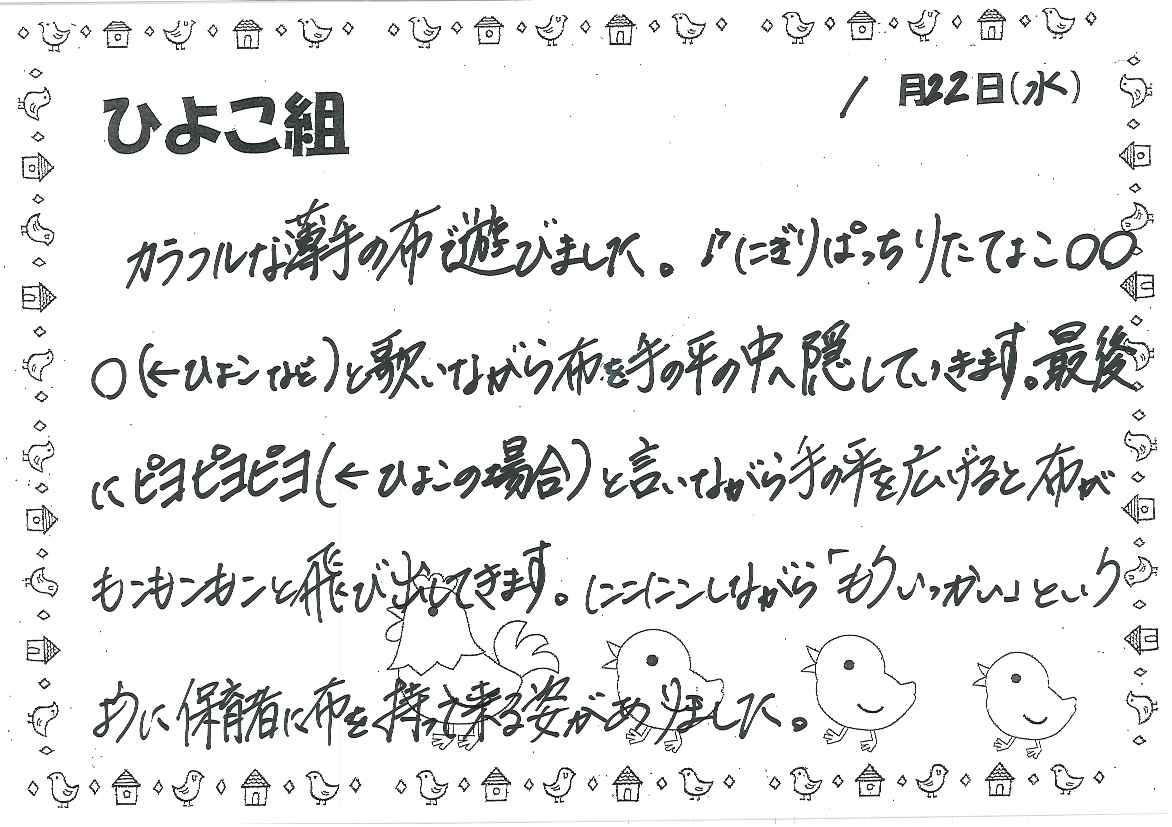 ひよこ組
1月22日(水)
カラフルな薄手の布で遊びました。♪にぎりぱっちりたてよこ〇〇
〇(←ひよこなど)と歌いながら布を手の平の中へ隠していきます。最後
にピヨピヨピヨ(←ひよこの場合)と言いながら手の平を広げると布が
もこもこもこと飛び出してきます。にこにこしながら「もういっかい」という
ように保育者に布を持って来る姿がありました。